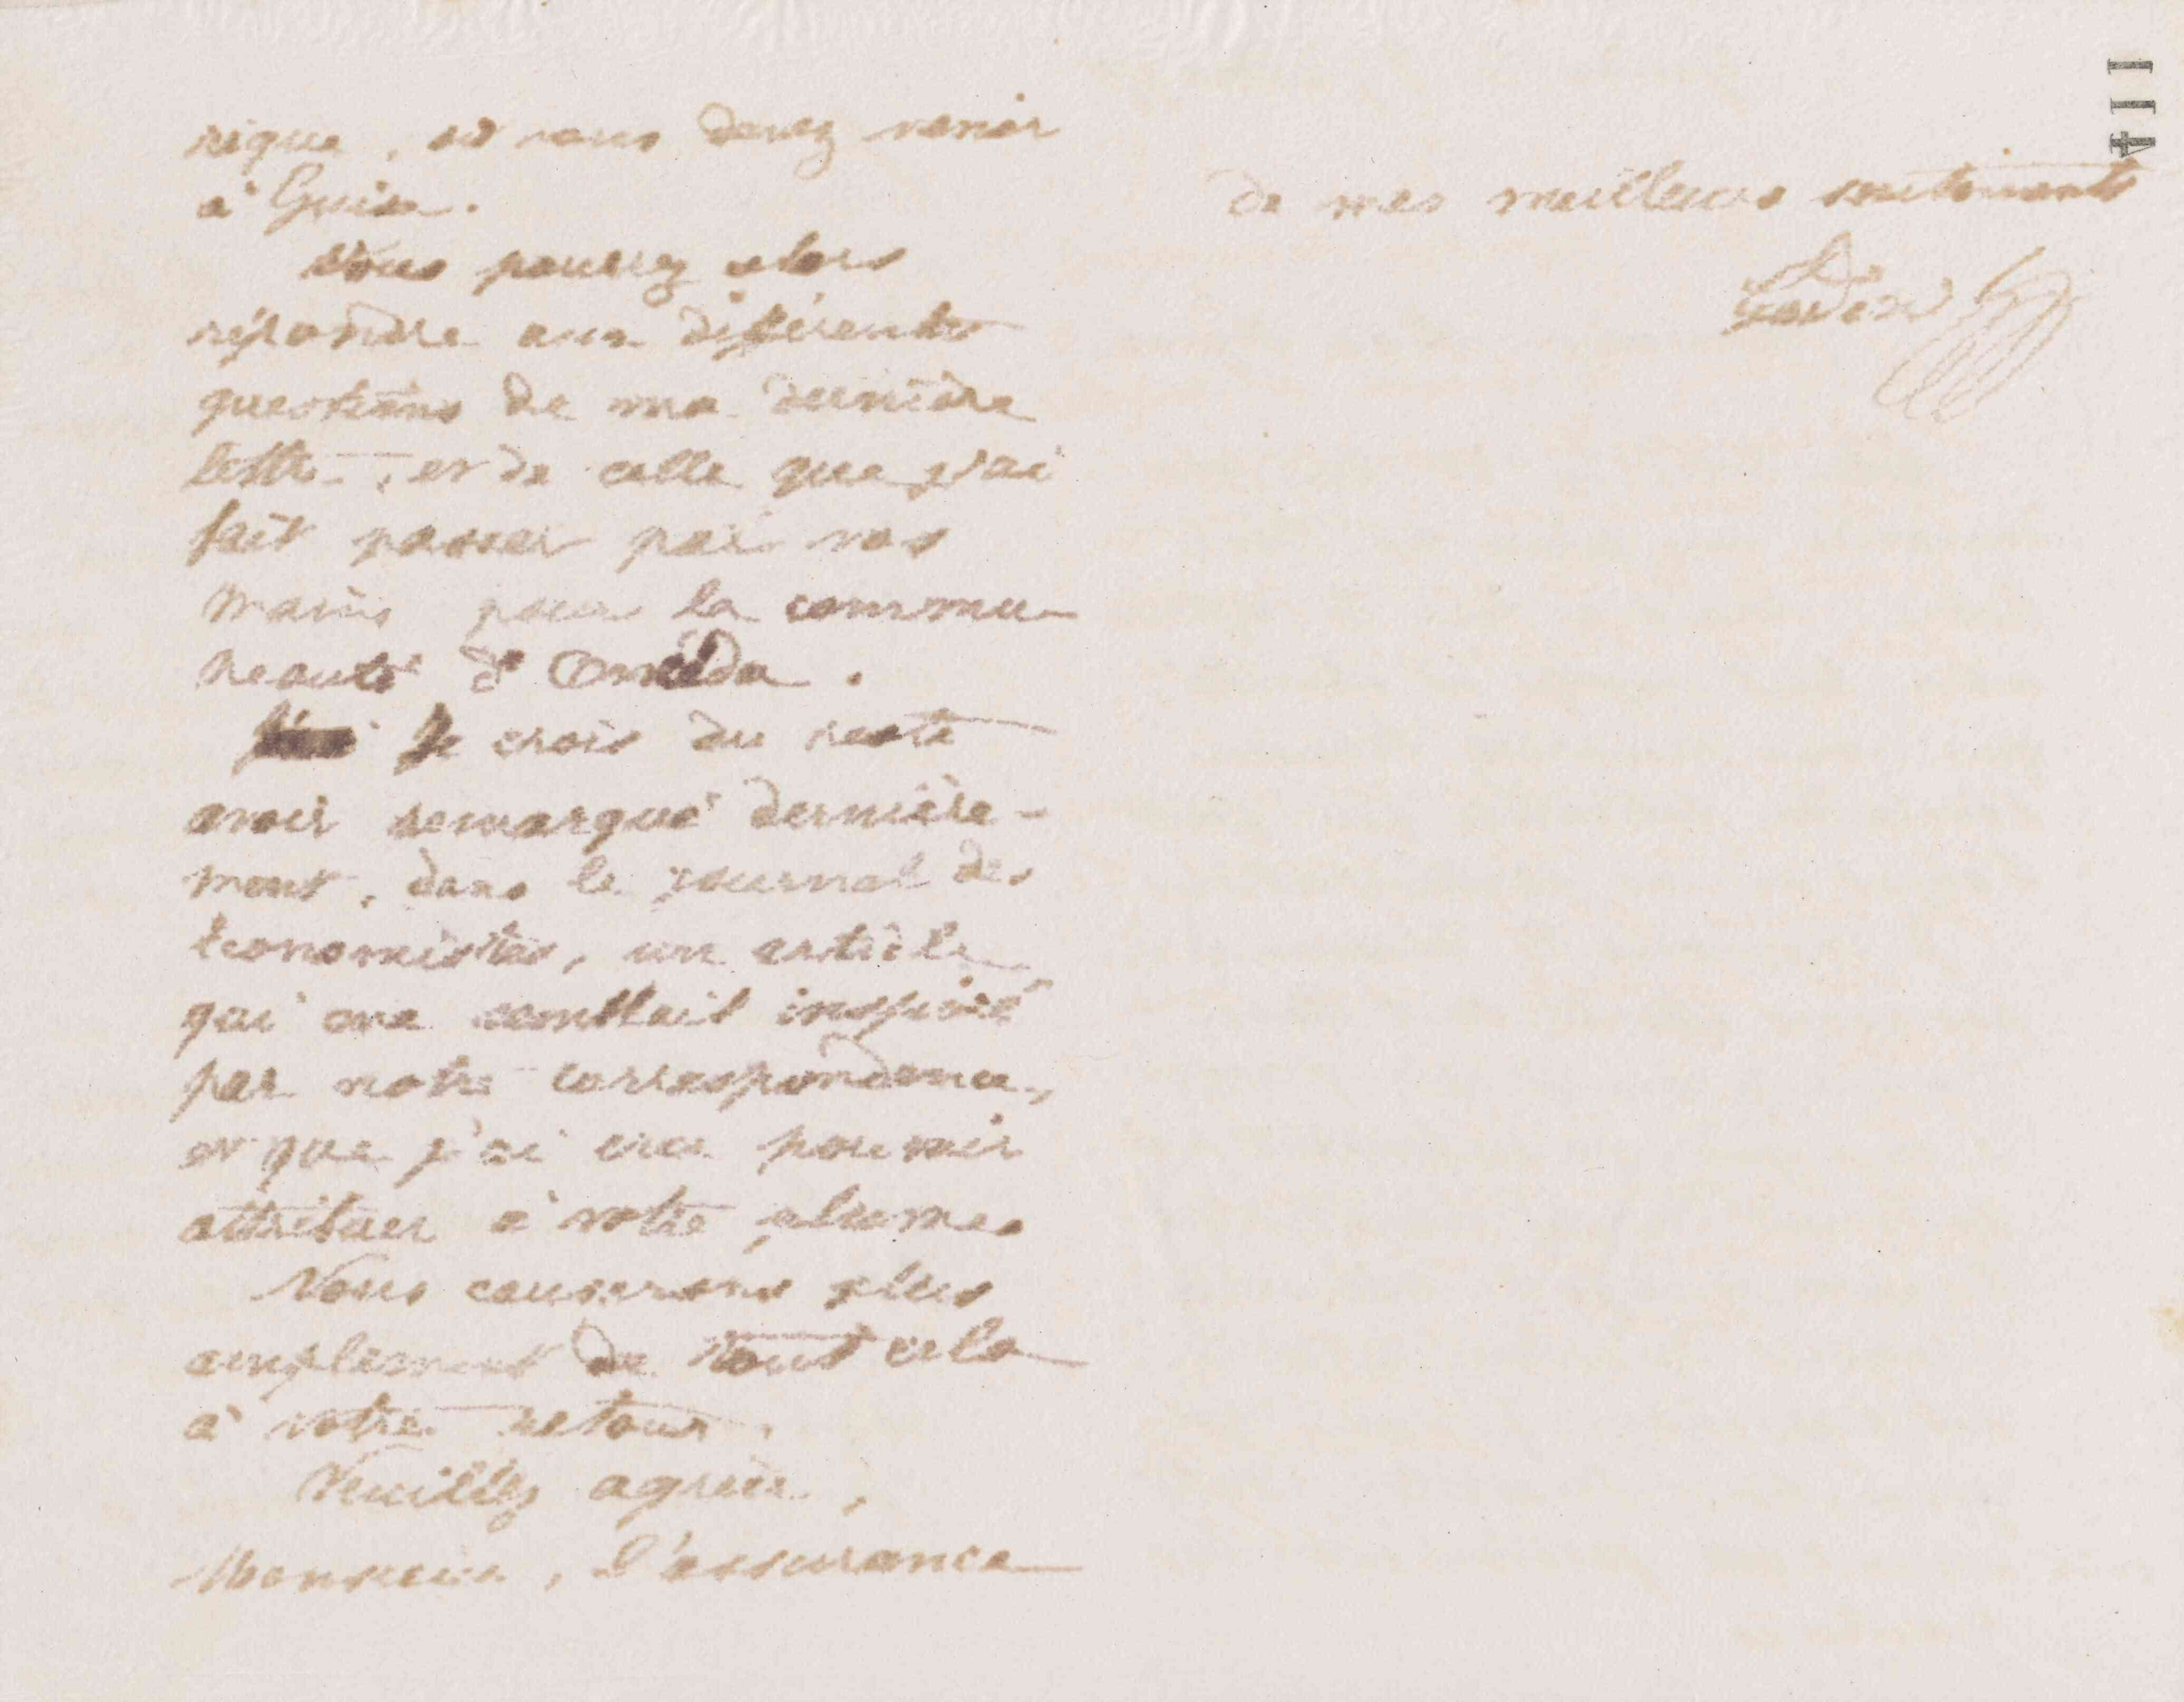 rique, où vous devez venir
à Guise.
Vous pourrez alors
répondre aux différentes
questions de ma dernière
lettre, et de celle que j'ai
fait passer par vos
mains pour la commu-
neauté d'Onéïda.
Je crois du reste
avoir remarqué dernière-
ment, dans le journal des
économistes, un article
qui me semblait inspiré
par notre correspondance,
et que j'ai cru pouvoir
attribuer à votre plume.
Nous causerons plus
amplement de tout cela
à votre retour.
Veuillez agréer,
Monsieur, l'assurance
114
de mes meilleurs sentiments
Godin